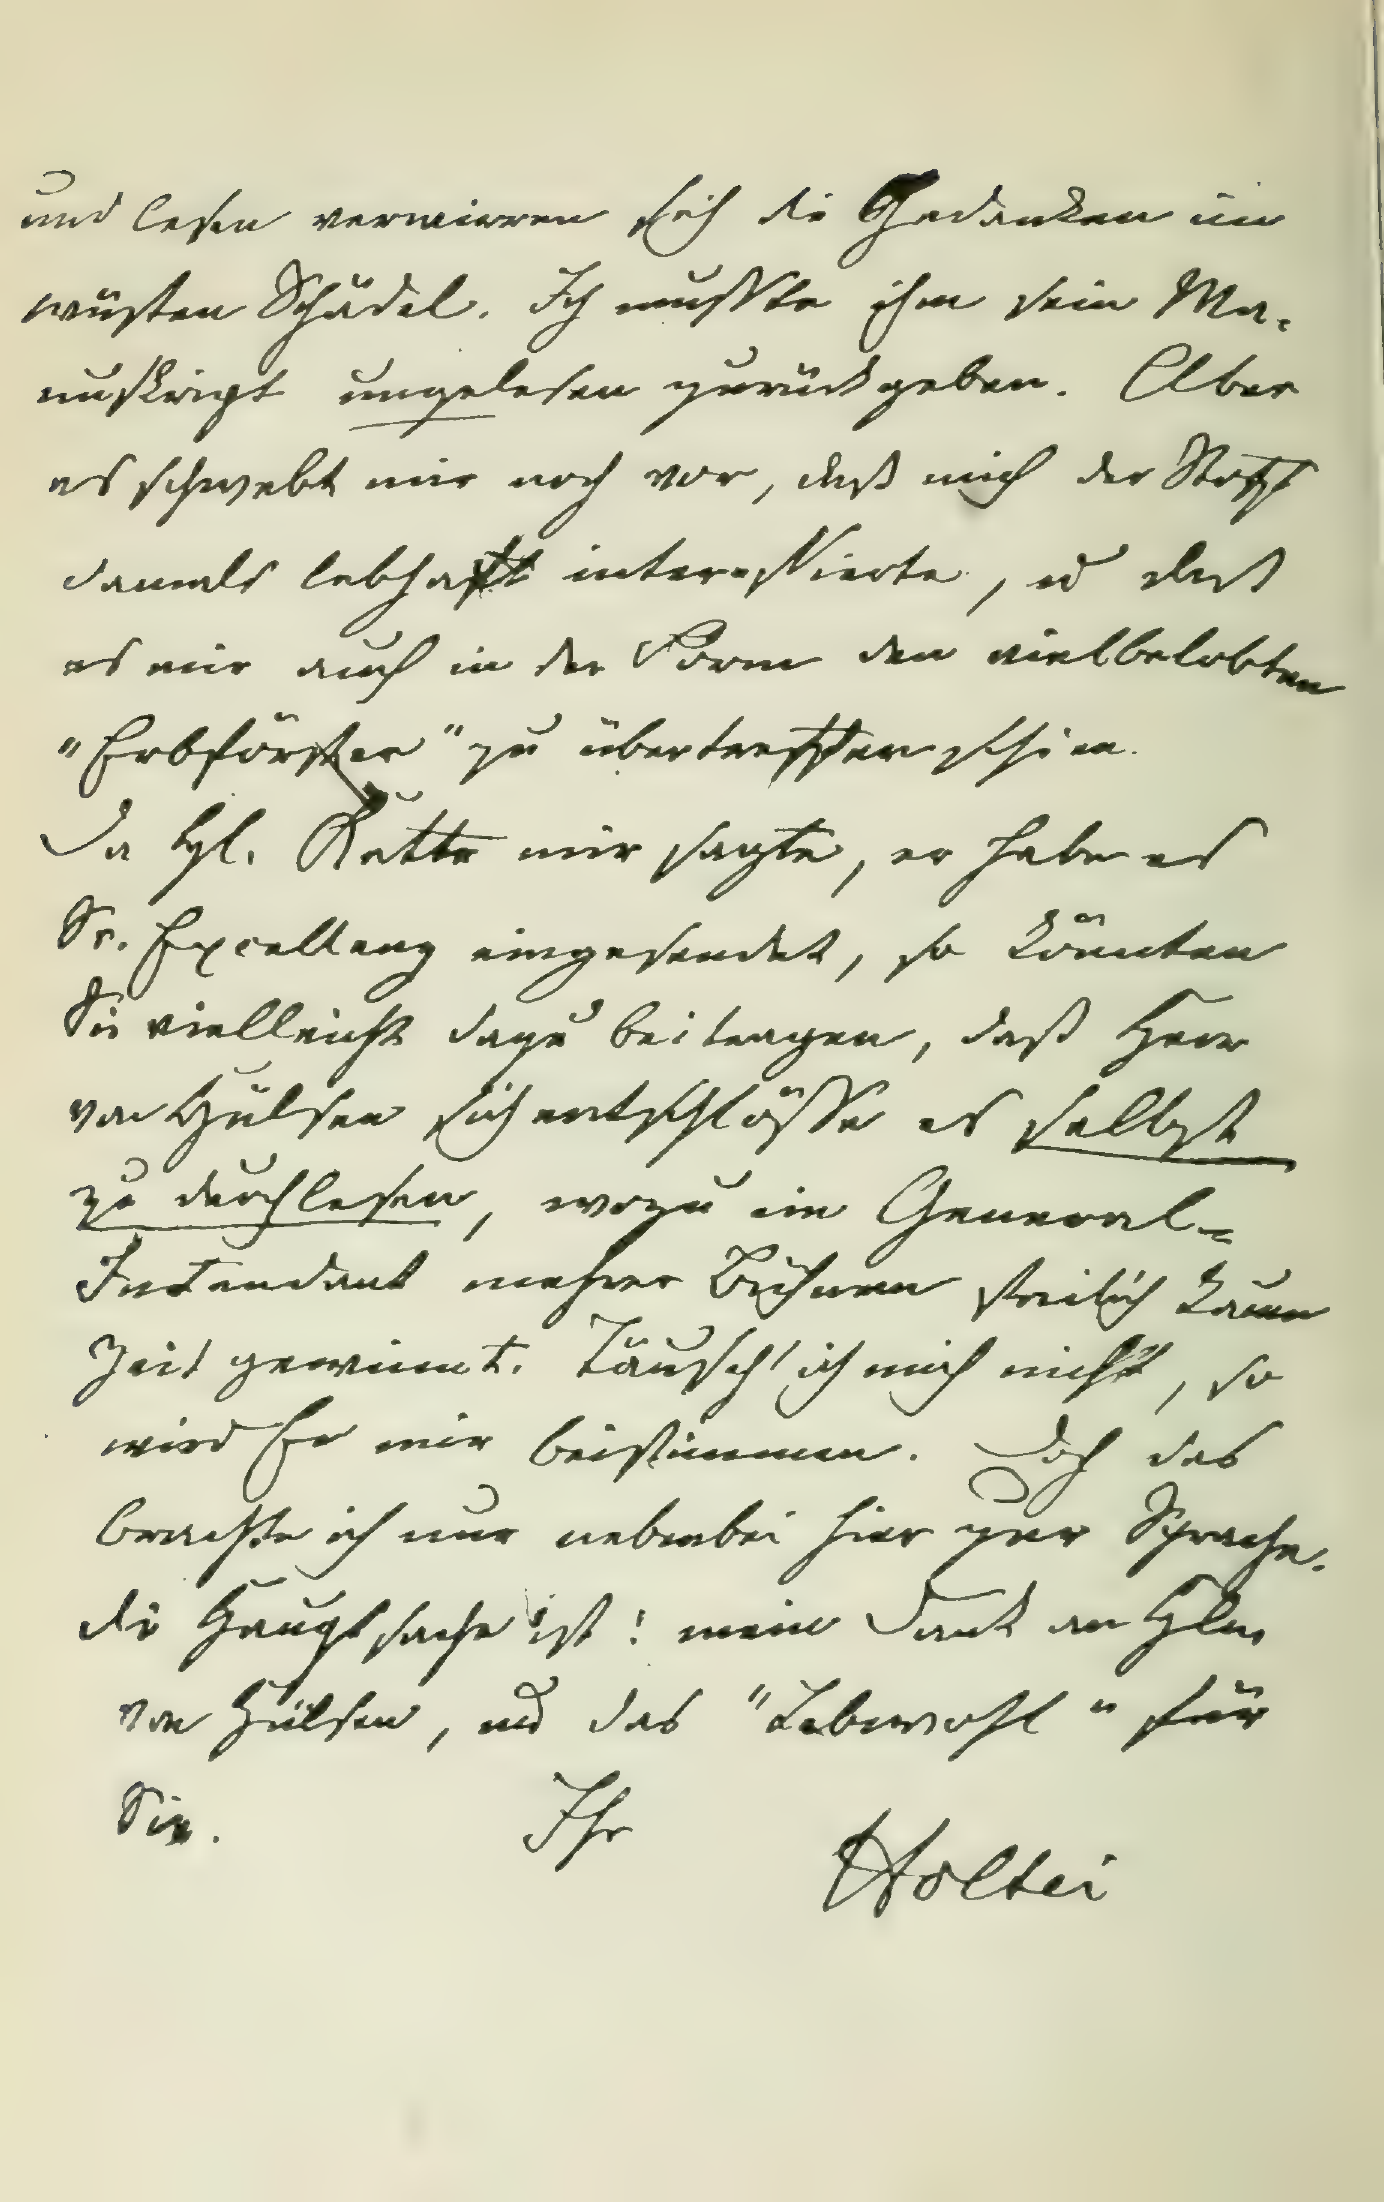 und lesen verwirren sich die Gedanken im
wüsten Schädel. Ich musste ihm sein Ma-
nuskript ungelesen zurückgeben. Aber
es schwebt mir noch vor, daß mich der Stoff
damals lebhaft interessierte, u daß
es mir auch in der Form den vielbelobten
"Erbförster" zu übertreffen schien.
Da Hl. mir sagte, er habe es
Sr. Excellenz eingesendet, so könnten
Sie vielleicht dazu beitragen, daß Herr
von Hülsen sich entschlösse es selbst
zu durchlesen, wozu ein General-
Intendant mehrer Bühnen freilich kaum
Zeit gewinnt. Täusch' ich mich nicht, so
wird Er mir beistimmen. Doch das
brachte ich nur nebenbei hier zur Sprache.
die Hauptsache ist: mein Dank an
von Hülsen, und das "Lebewohl" für
Sie. Ihr
Holtei